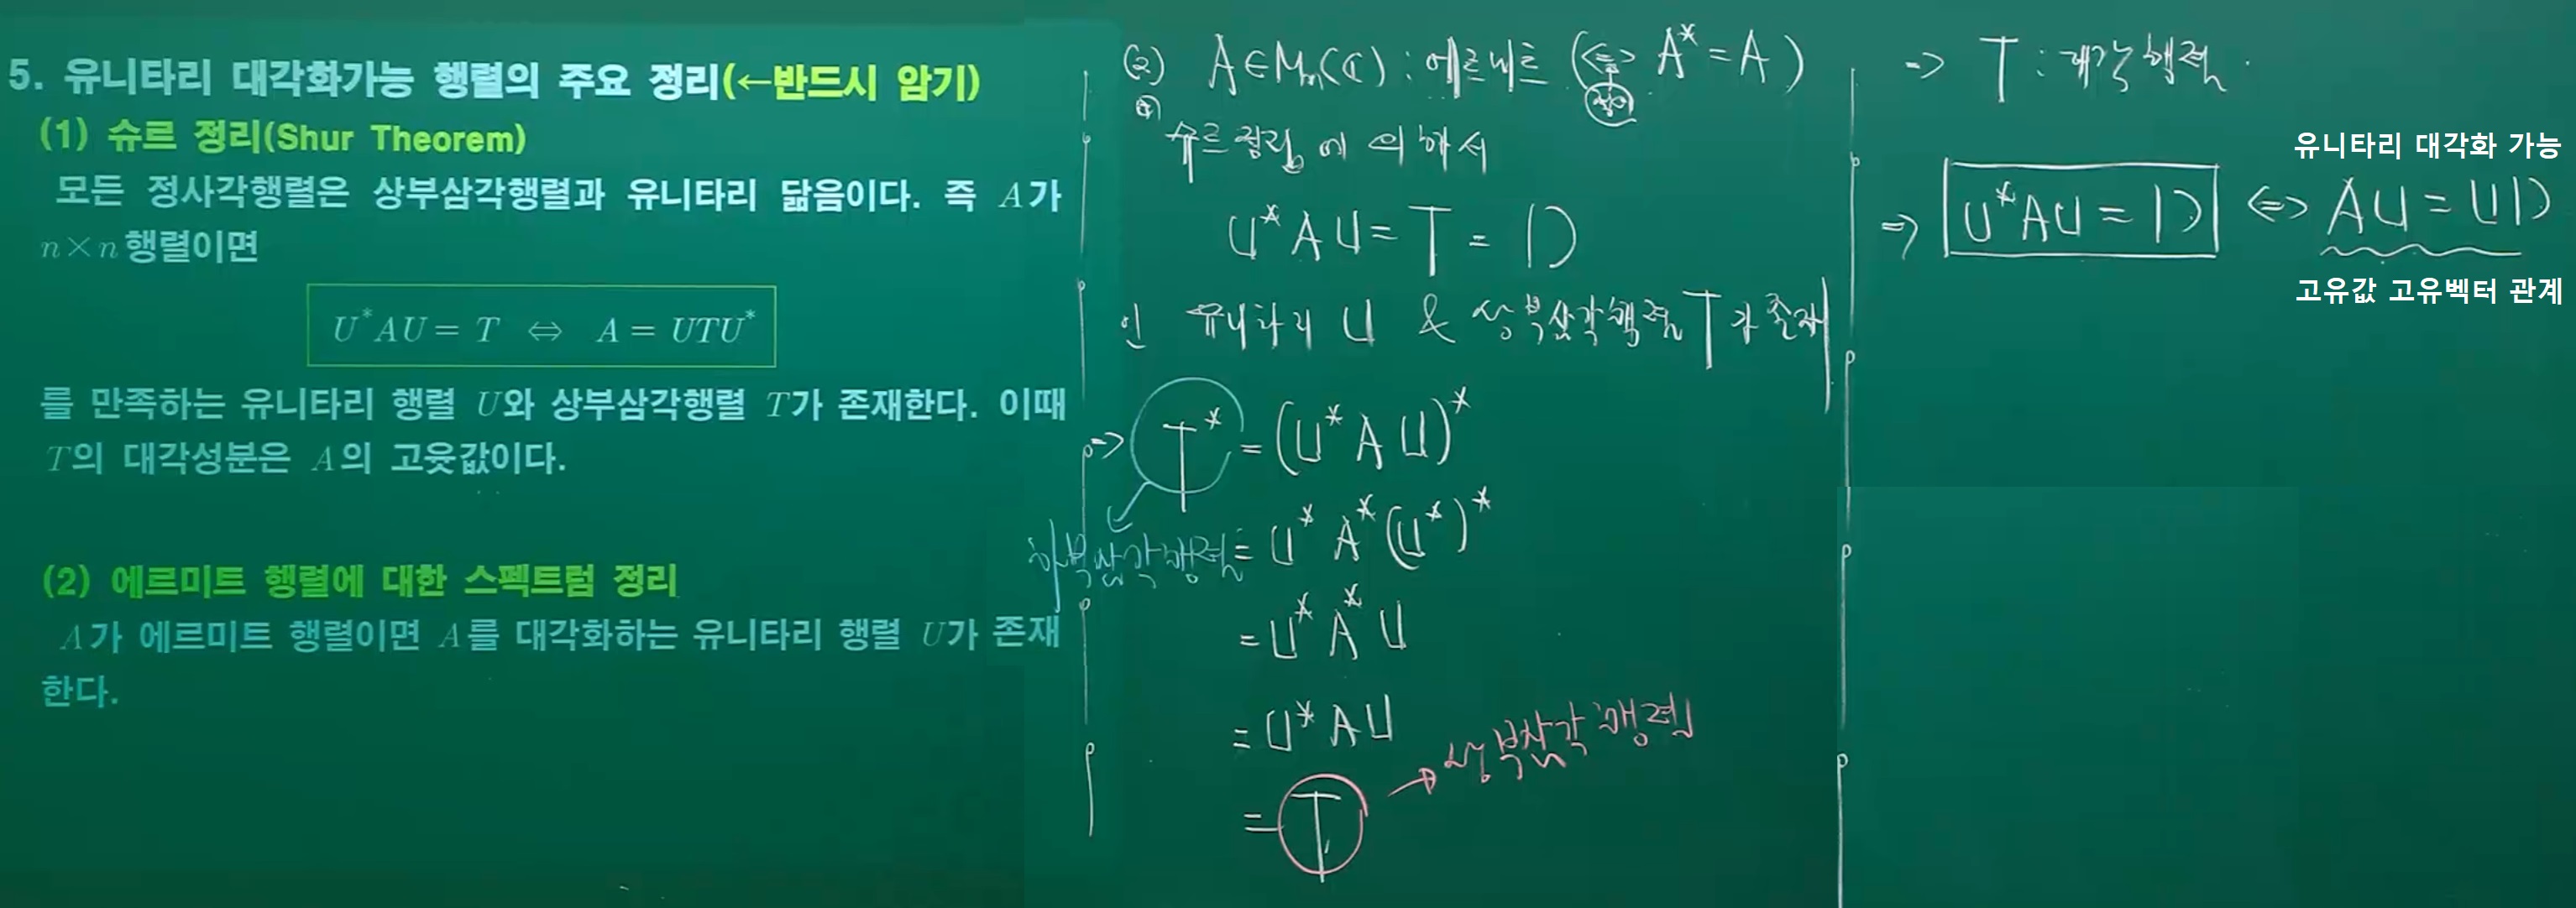 5. 유니타리 대각화가능 행렬의 주요 정리(←반드시 암기)
(1) 슈르 정리(Shur Theorem)
모든 정사각행렬은 상부삼각행렬과 유니타리 닮음이다. 즉 A가
n×n행렬이면
U*AU = T ⇔ A = UTU*
를 만족하는 유니타리 행렬 U와 상부삼각행렬 T가 존재한다. 이때
T의 대각성분은 A의 고윳값이다.
(2) 에르미트 행렬에 대한 스펙트럼 정리
A가 에르미트 행렬이면 A를 대각화하는 유니타리 행렬 U가 존재
한다.
(2) A∈Mn(ℂ) : 에르미트 (⇔ A* = A)
정의
슈르정리에 의하여
U*AU = T = D
인 유니타리 U & 상부삼각행렬 T가 존재
⇒ T* = (U*AU)*
하부삼각행렬 = U*A*(U*)*
= U*A*U
= U*AU
= T → 상부삼각행렬
⇒ T : 대각행렬.
유니타리 대각화 가능
⇒ U*AU = D ⇔ AU = UD
고유값 고유벡터 관계